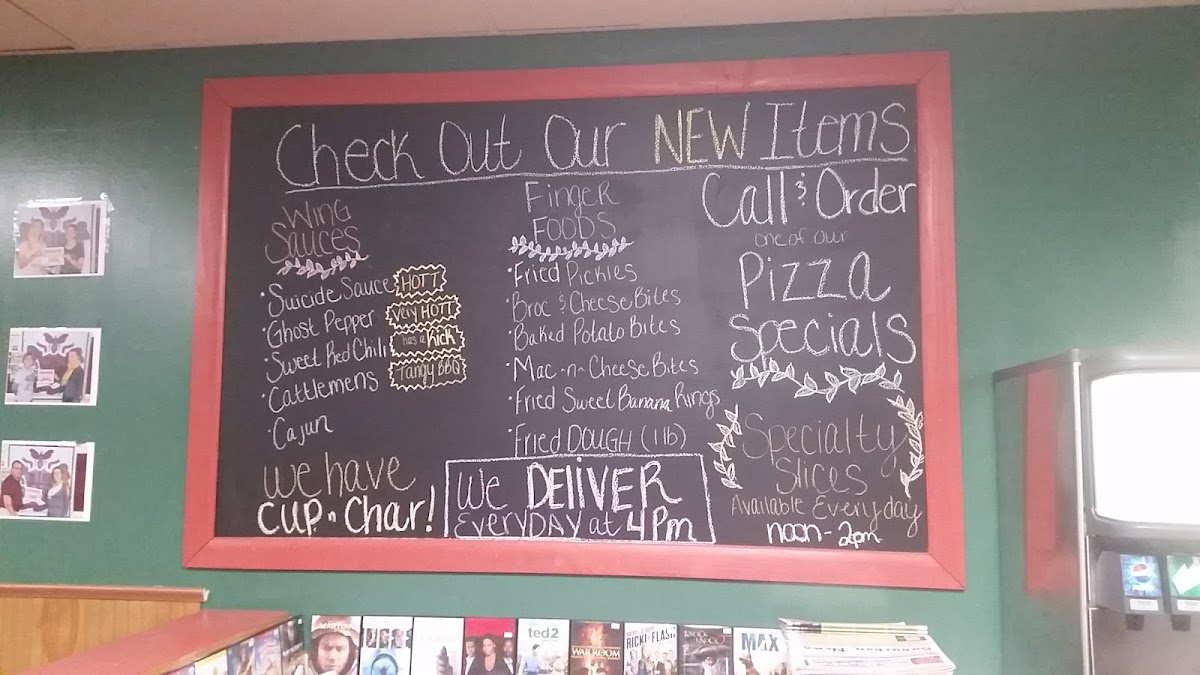 Check Out Our NEW Items
Wing
Sauces
• Suicide Sauce HOTT
• Ghost Pepper Very HOTT
• Sweet Red Chili has a Kick
• Cattlemens Tangy BBQ
• Cajun
We have
Cup n Char!
Finger
Foods
• Fried Pickles
• Broc & Cheese Bites
• Baked Potato Bites
• Mac-n-Cheese Bites
• Fried Sweet Banana Rings
• Fried DOUGH (1 lb)
We DELIVER
EVERYDAY at 4pm
Call & Order
one of our
Pizza
Specials
Specialty
Slices
Available Everyday
noon - 2pm
ted 2
WAR ROOM
RICKI AND THE FLASH
KNOCK KNOCK
MAX
pepsi